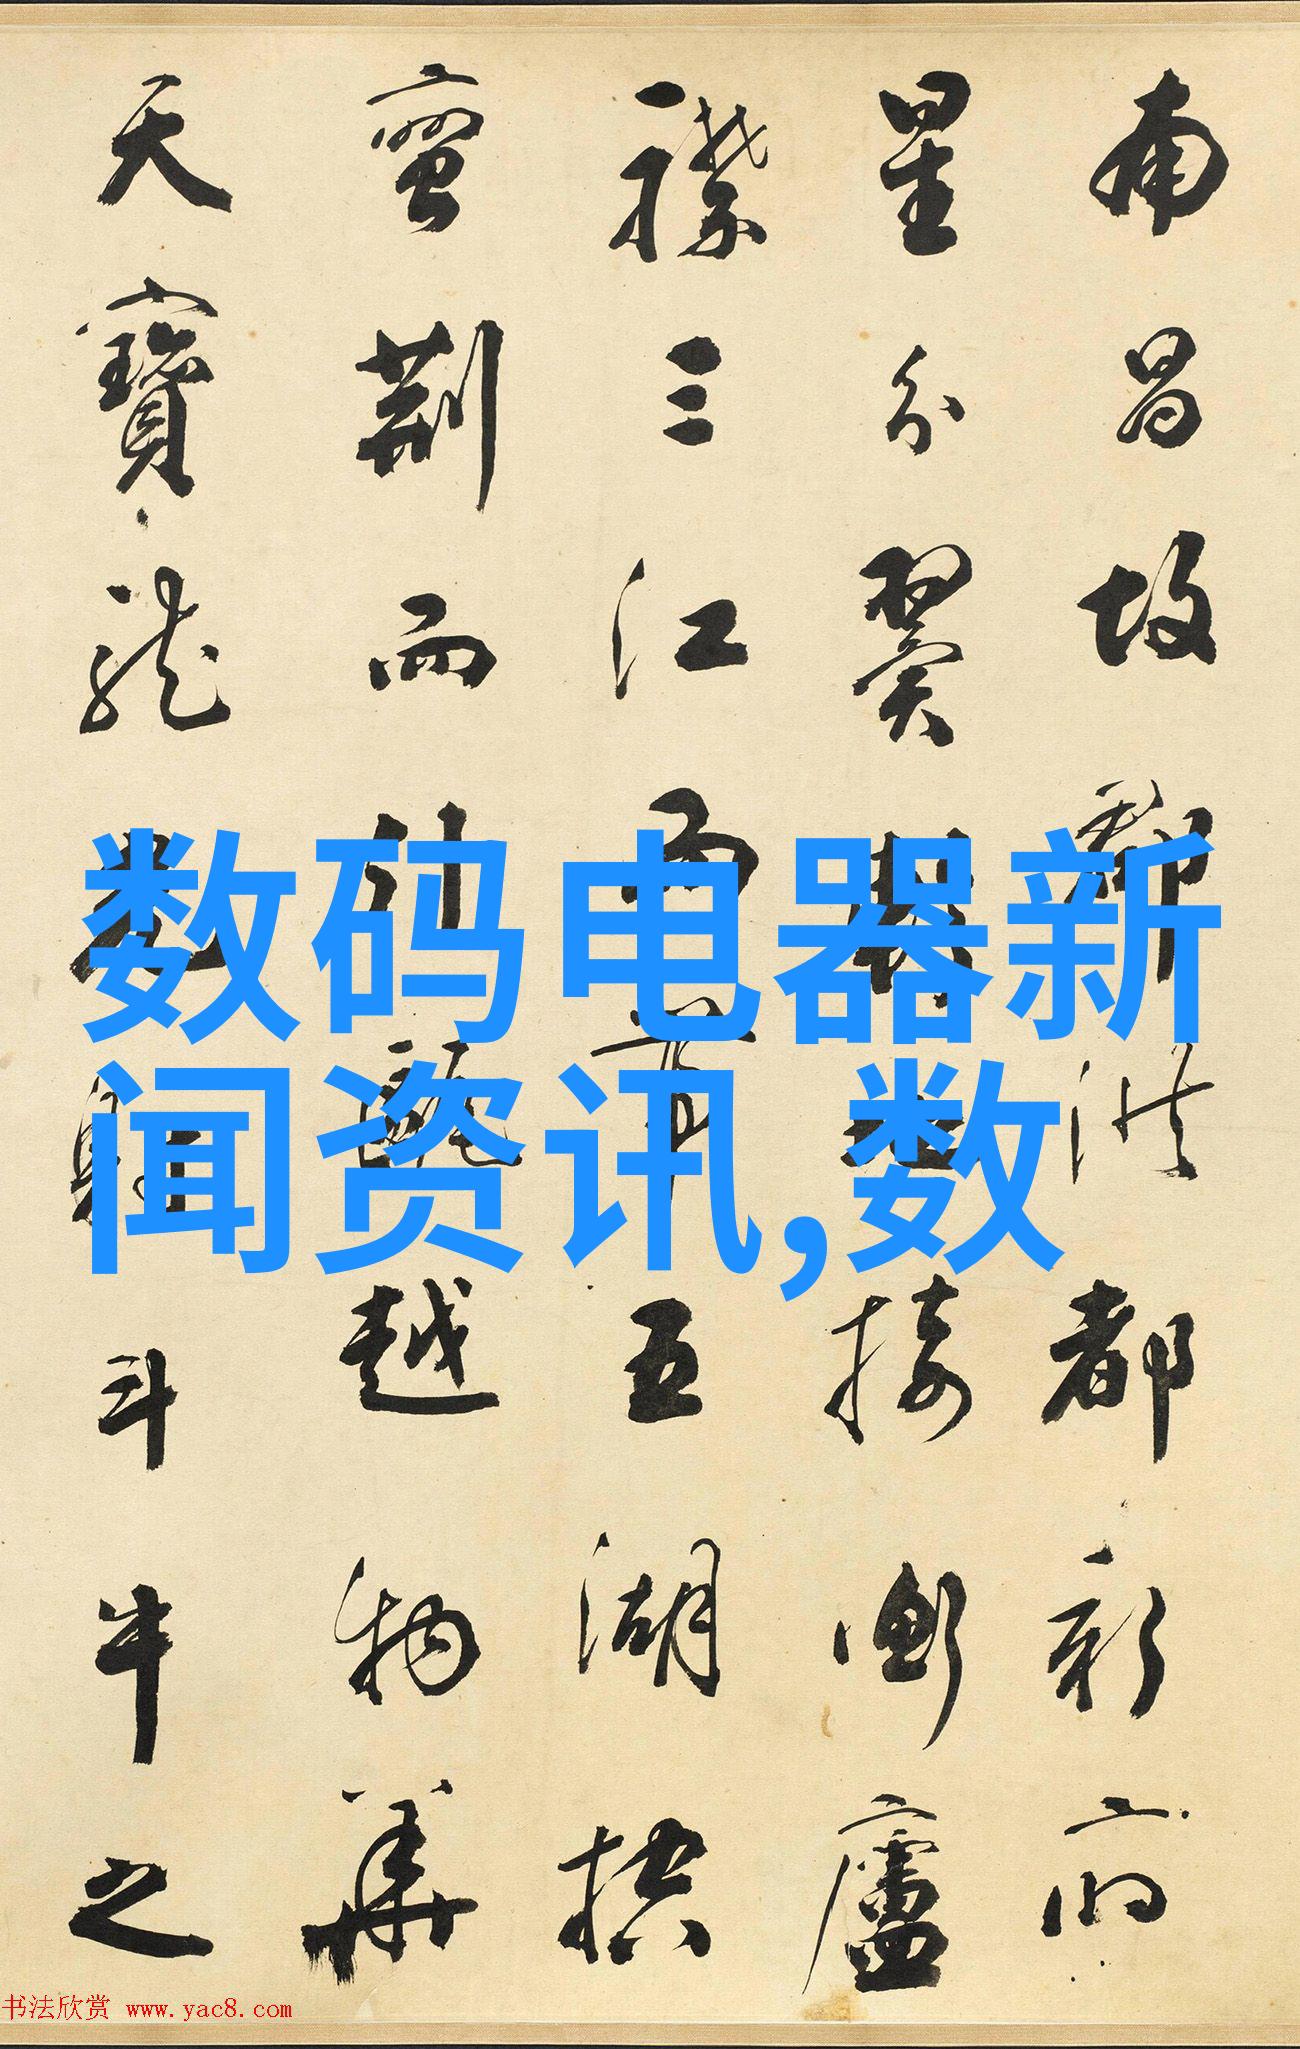 南昌故郡洪都新府
星分翼軫地接衡廬
襟三江而帶五湖控
蠻荊而引甌越物華
天寶龍光射斗牛之
数码电器新
闻资讯,数
书法欣赏 www.yac8.com